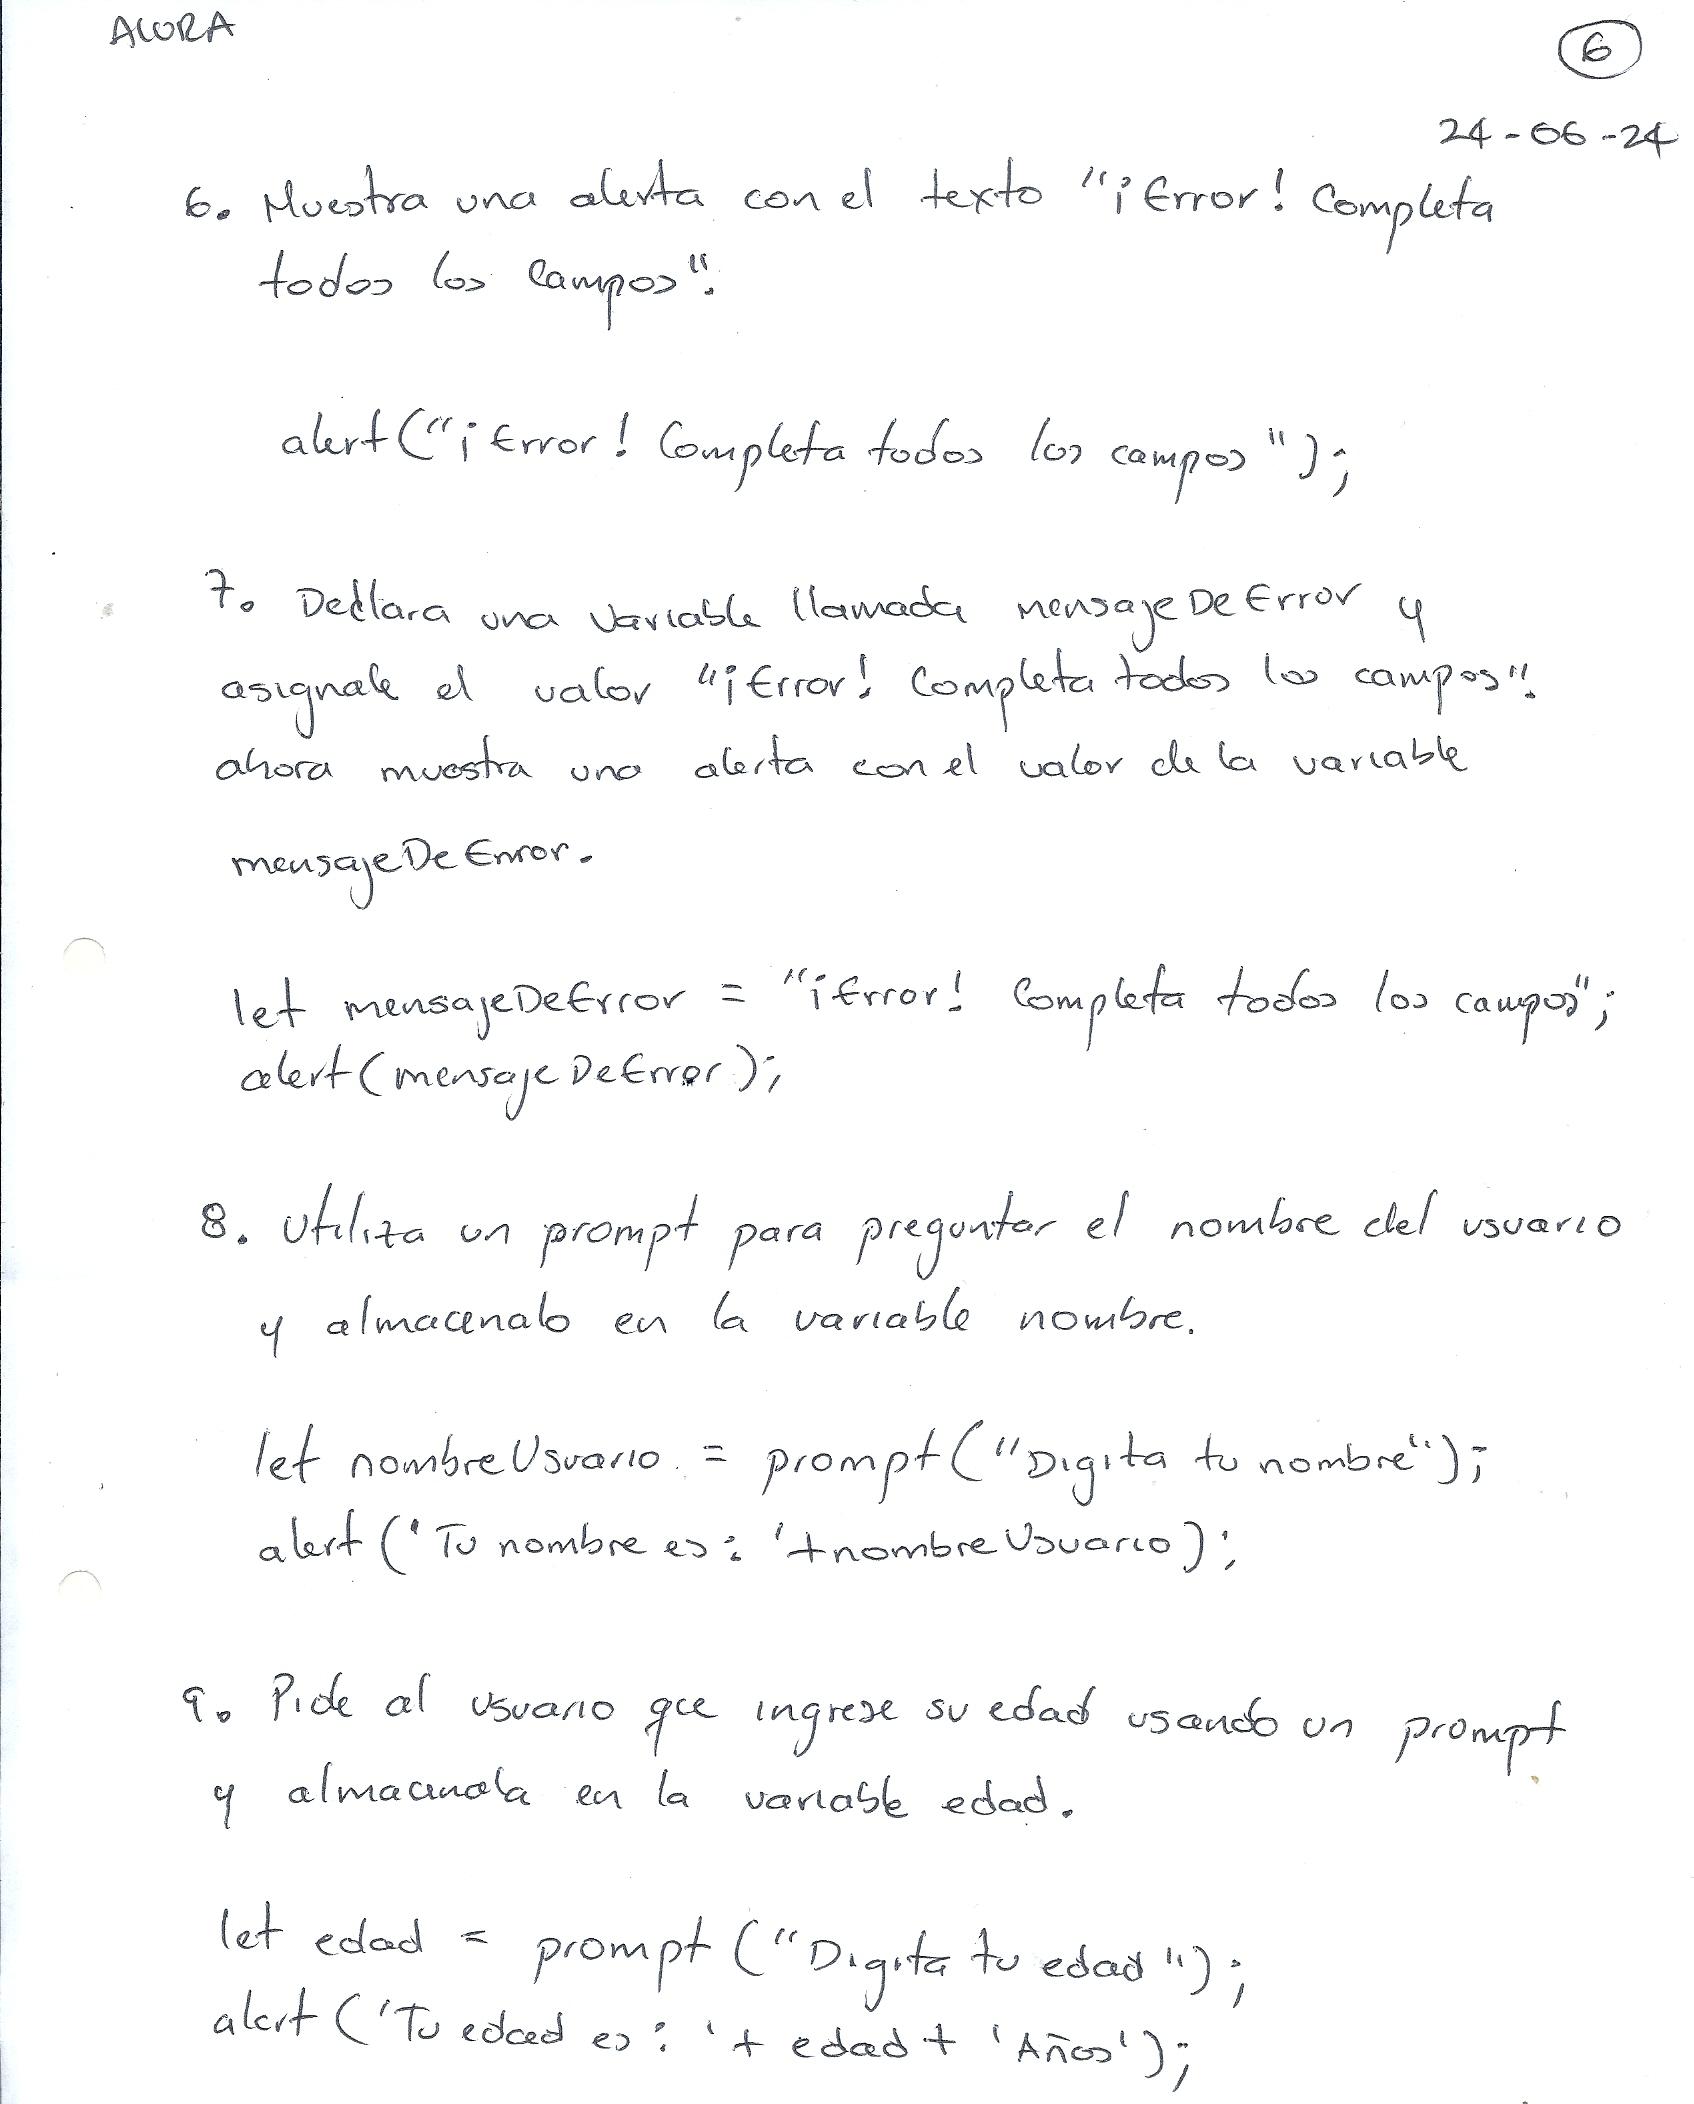 ALURA
6
24-06-24
6. Muestra una alerta con el texto "¡Error! Completa
todos los campos".
alert("¡Error! Completa todos los campos");
7. Declara una variable llamada mensajeDeError y
asignale el valor "¡Error! Completa todos los campos".
ahora muestra una alerta con el valor de la variable
mensajeDeError.
let mensajeDeError = "¡Error! Completa todos los campos";
alert(mensajeDeError);
8. Utiliza un prompt para preguntar el nombre del usuario
y almacenalo en la variable nombre.
let nombreUsuario = prompt("Digita tu nombre");
alert('Tu nombre es: '+nombreUsuario);
9. Pide al usuario que ingrese su edad usando un prompt
y almacenala en la variable edad.
let edad = prompt("Digita tu edad");
alert('Tu edad es: '+ edad + 'Años');